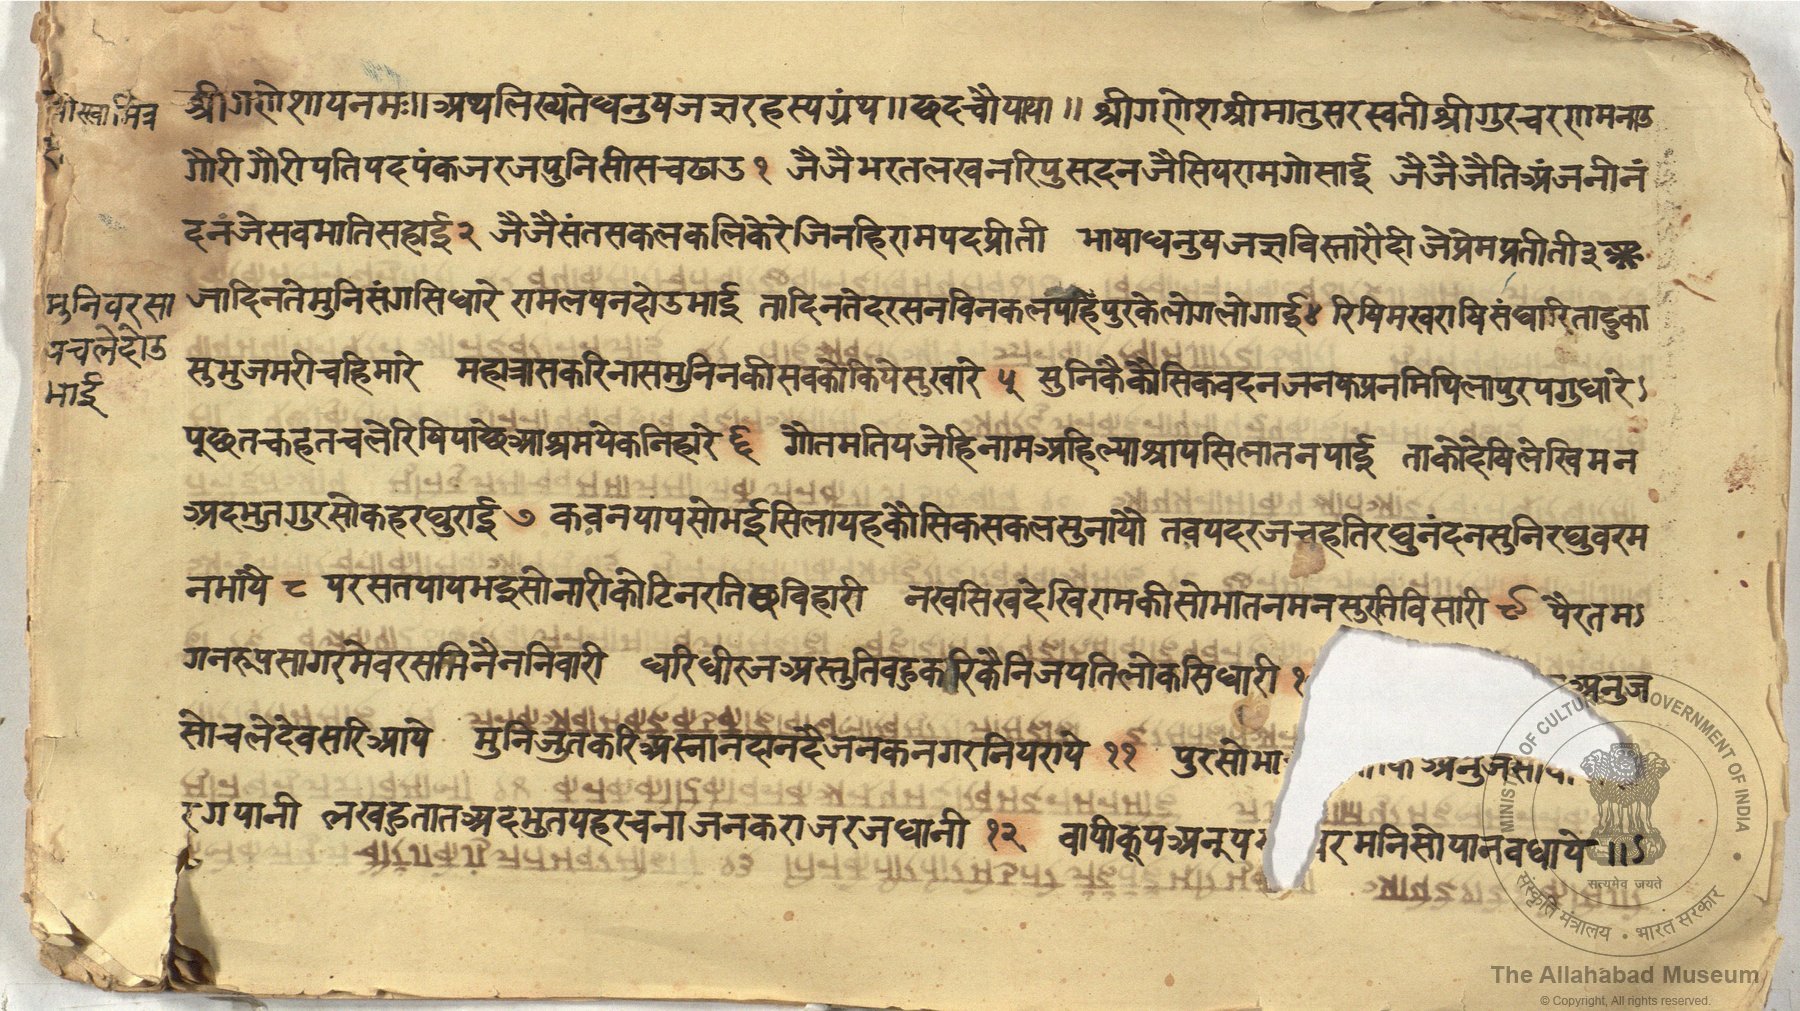 श्रीगणेशायनमः॥अथलिख्यतेधनुषजज्ञरहस्यग्रंथ॥छदचौपाया॥ श्रीगणेशश्रीमातुसरस्वतीश्रीगुरचरणमनाउ
गौरीगौरीपतिपदपंकजरजपुनिसीसचढाउ१ जैजैभरतलखनरिपुसूदनजैसियरामगोसाई जैजैजैतिअंजनीनं
दनंजेसवभातिसहाई२ जैजैसंतसकलकलिकेरेजिनहिरामपदप्रीती भाषाधनुषजज्ञविस्तारौदीजेप्रेमप्रतीती३
मुनिवरसा
थचलेदोउ
भाई
जादिनतेमुनिसंगसिधारे रामलषनदोउभाई तादिनतेदरसनविनकलपहिंपुरकेलोगलोगाई४ रिषिमखराषिसंघारिताडुका
सुभुजमरीचहिमारे महात्रासकरिनासमुनिनकीसवकौकियेसुखारे ५ सुनिकैकौसिकवदनजनकप्रनमिथिलापुरपगुधारे
पूछतकहतचलेरिषिपाछेआश्रमयेकनिहारे ६ गौतमतियजेहिनामअहिल्याश्रापसिलातनपाई ताकोदेषिलेखिमन
अदभुतगुरसोकहरघुराई ७ कवनपापसोभईसिलायहकौसिकसकलसुनायौ तवपदरजचहतिरघुनंदनसुनिरघुवरम
नभाये ८ परसतपायभइसोनारीकोटिनरतिछविहारी नखसिखदेखिरामकीसोभातनमनसुरतिविसारी ९ पैरतम
गनरूपसागरमेवरसतनिनैननिवारी धरिधीरजअस्तुतिवहुकरिकैनिजपतिलोकसिधारी १ अनुज
सोचलेदेवसरिआये मुनिजुतकरिअस्नानदानदैजनकनगरनियराये ११ पुरसोभा
रुगपानी लखहुतातअदभुतपहरचनाजनकराजरजधानी १२ वापीकूपअनूप रमनिसोपानवधाये ॥
MINISTRY OF CULTURE GOVERNMENT OF INDIA
सत्यमेव जयते
संस्कृति मंत्रालय • भारत सरकार
The Allahabad Museum
© Copyright, All rights reserved.